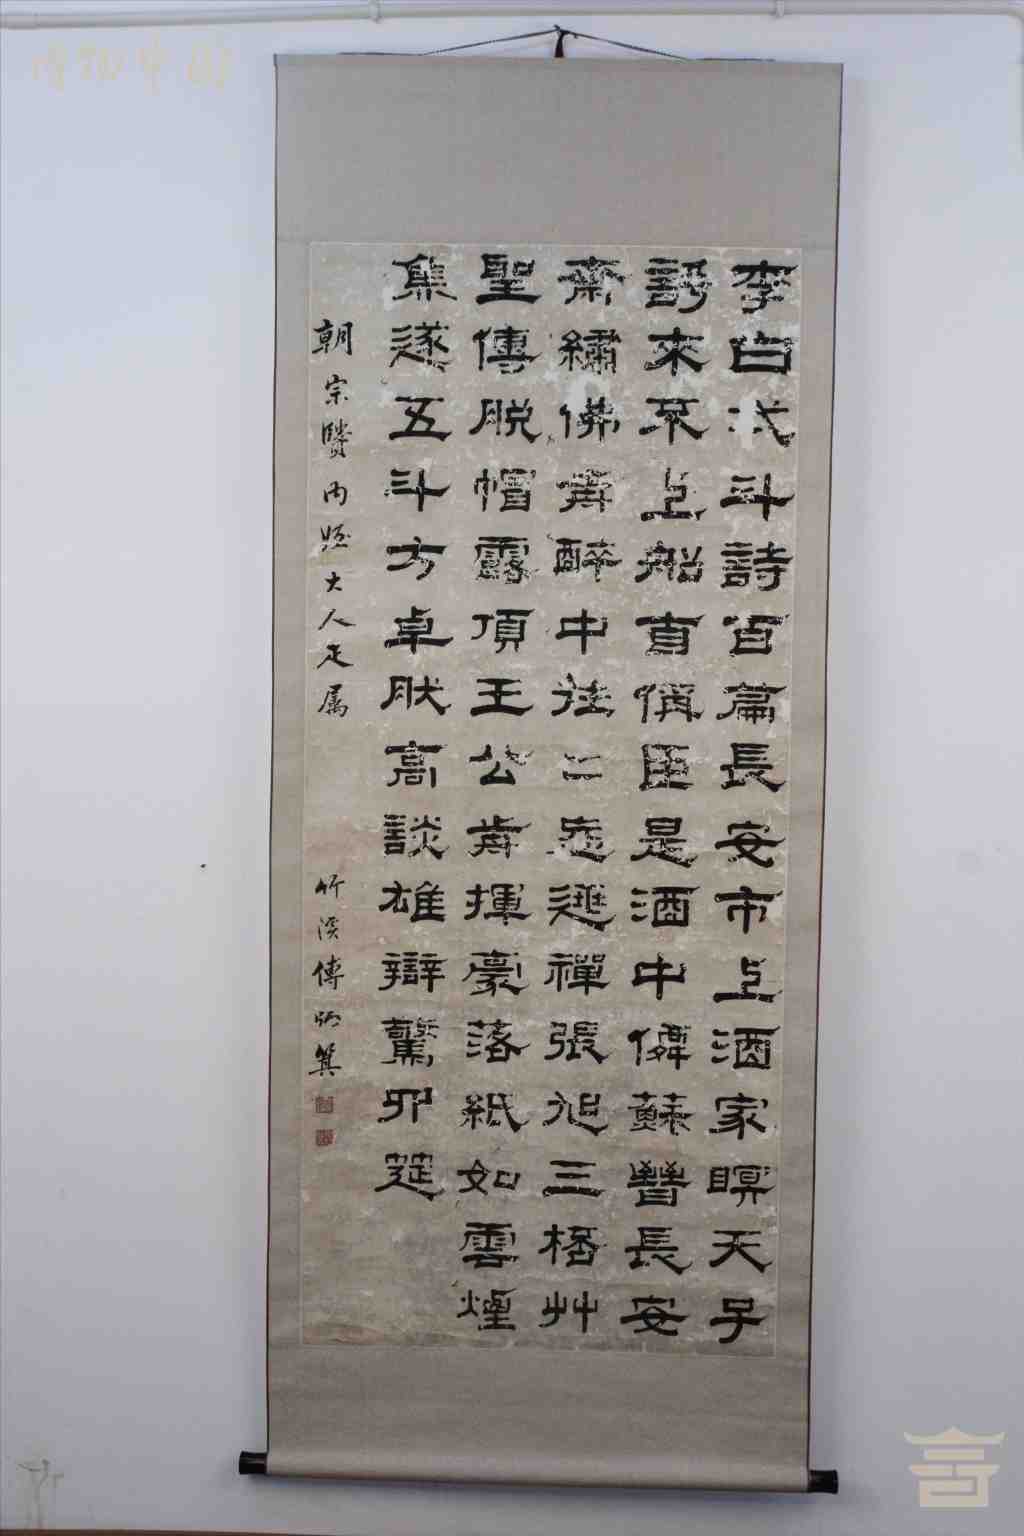 博物中国
李白弌斗詩百篇長安市上酒家瞑天子
謼來不上船自偁臣是酒中僊蘇晉長安
齋繡佛歬醉中往二㤅逃禪張旭三桮艸
聖傳脫帽露頂王公歬揮豪落紙如雲煙
焦遂五斗方卓肰高談雄辯驚四筵
朝宗賢內姪大人正屬
竹溪傅炳箕